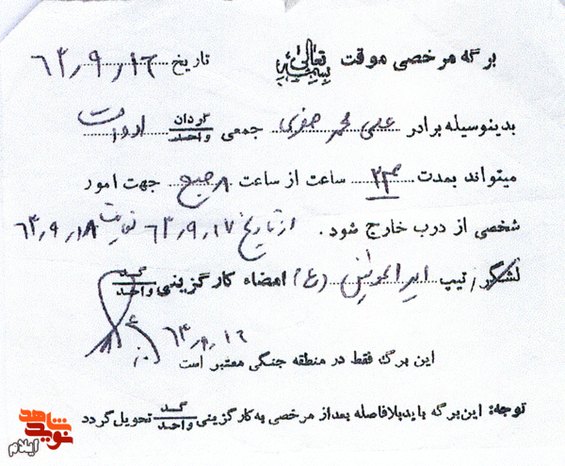 برگه مرخصی موقت بسمه تعالی تاریخ ۶۳٫۹٫۱۶
بدینوسیله برادر علی محمد صفری جمعی گردان واحد ادوات
میتواند بمدت ۲۴ ساعت از ساعت ۸ صبح جهت امور
شخصی از درب خارج شود. از تاریخ ۶۳٫۹٫۱۷ لغایت ۶۳٫۹٫۱۸
لشگر/تیپ امیرالمومنین (ع) امضاء کارگزینی گد واحد
۶۳٫۹٫۱۶
این برگ فقط در منطقه جنگی معتبر است
توجه: این برگه باید بلافاصله بعد از مرخصی به کارگزینی گد واحد تحویل گردد
نوید شاهد
ایلام